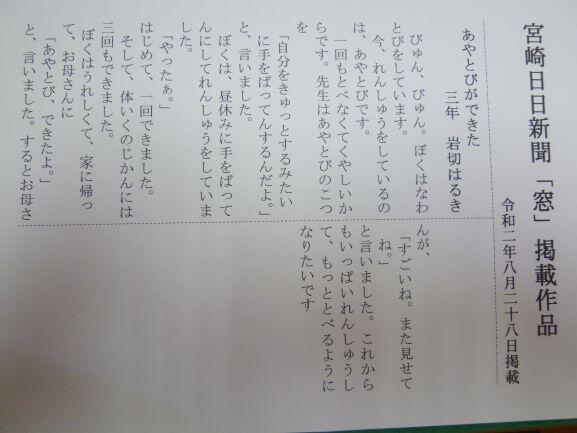 宮崎日日新聞「窓」掲載作品
令和二年八月二十八日掲載
あやとびができた
三年　岩切はるき
びゅん、びゅん。ぼくはなわ
とびをしています。
今、れんしゅうをしているの
は、あやとびです。
一回もとべなくてくやしいか
らです。先生はあやとびのこつ
を
「自分をきゅっとするみたい
に手をばってんするんだよ。」
と、言いました。
ぼくは、昼休みに手をばって
んにしてれんしゅうをしていま
した。
「やったぁ。」
はじめて、一回できました。
そして、体いくのじかんには
三回もできました。
ぼくはうれしくて、家に帰っ
て、お母さんに
「あやとび、できたよ。」
と、言いました。するとお母さ
んが、
「すごいね。また見せて
ね。」
と言いました。これから
もいっぱいれんしゅうし
て、もっととべるように
なりたいです